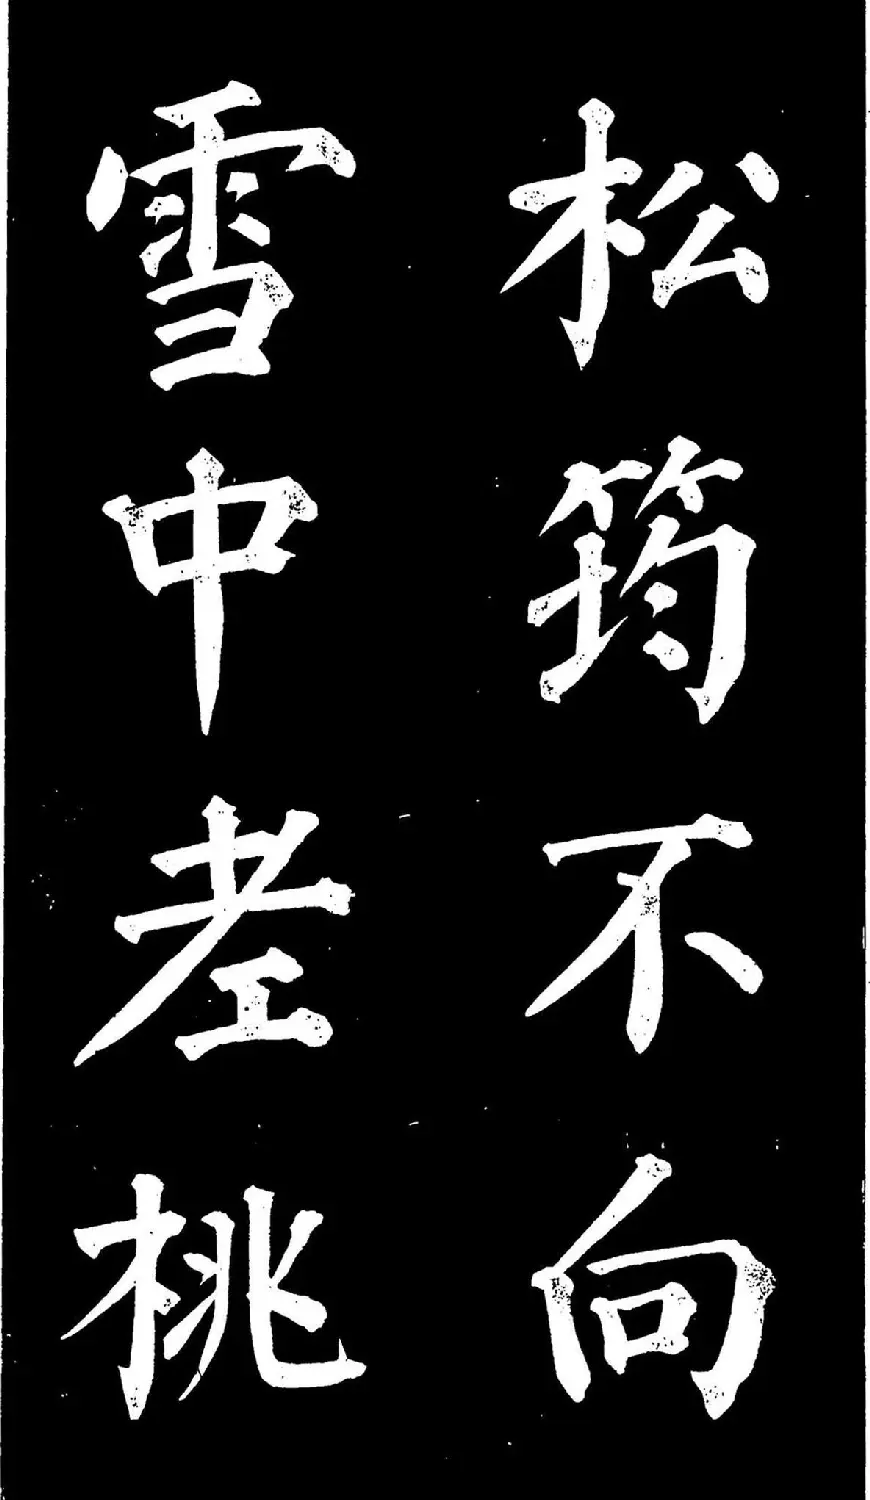 松筠不向
雪中老桃